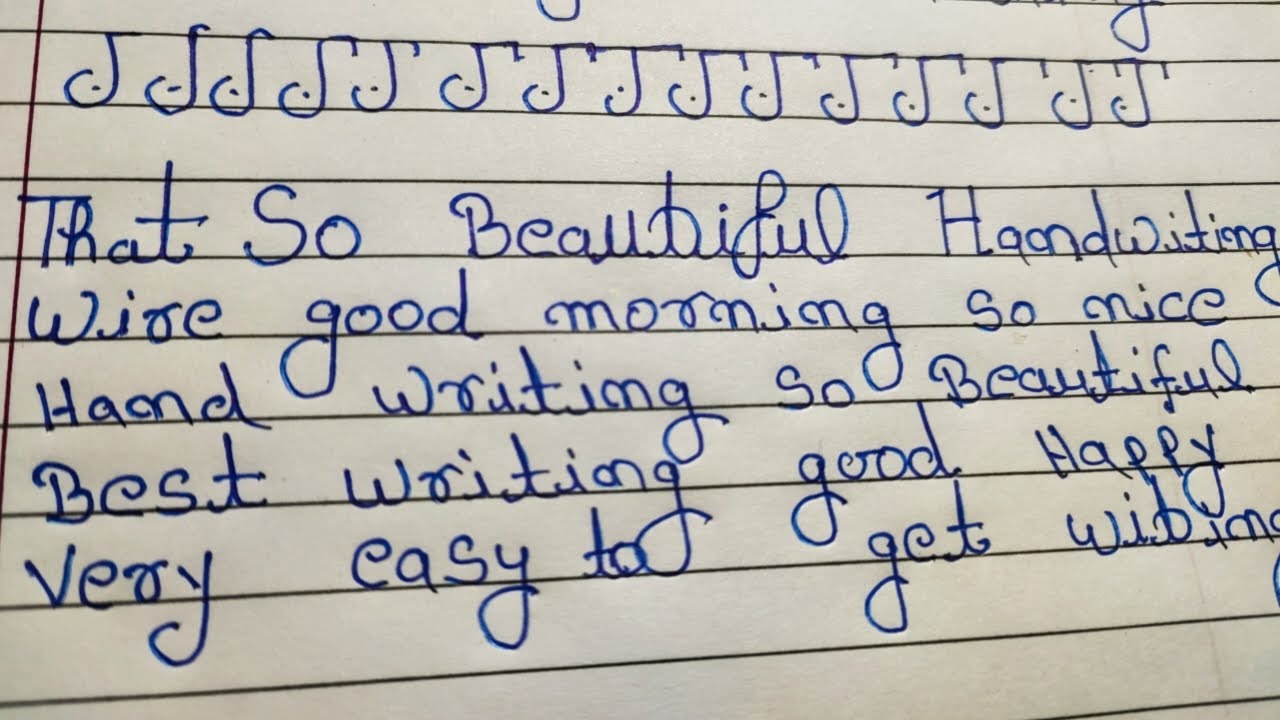 J J J J J J J J J J J J J J J
That So Beautiful Handwiting
Wire good morning so nice
Hand writing so Beautiful
Best writing good Happy
very easy to get